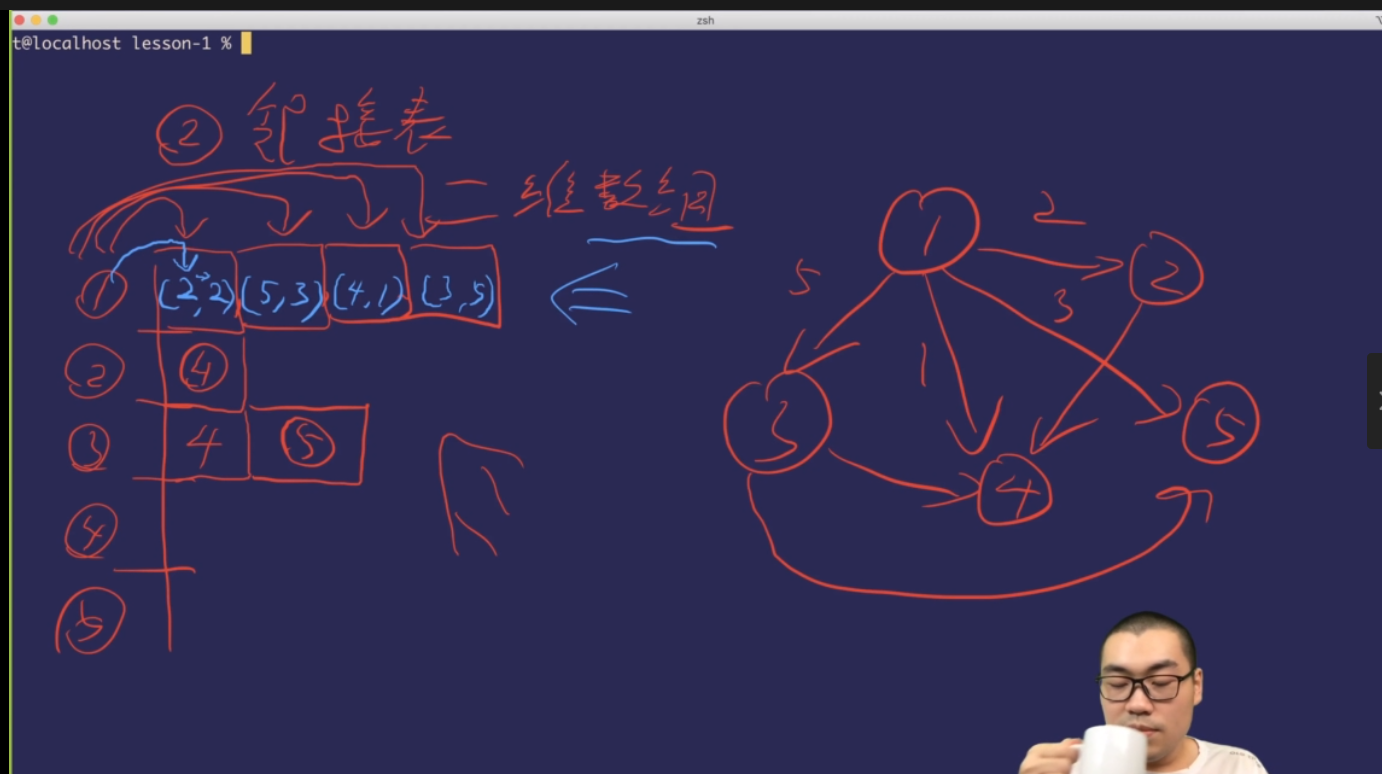 zsh
t@localhost lesson-1 %
② 邻接表
二维数组
① (2,2) (5,3) (4,1) (3,5)
② ④
③ 4 ⑤
④
⑤
1
2
2
5
3
1
3
5
4